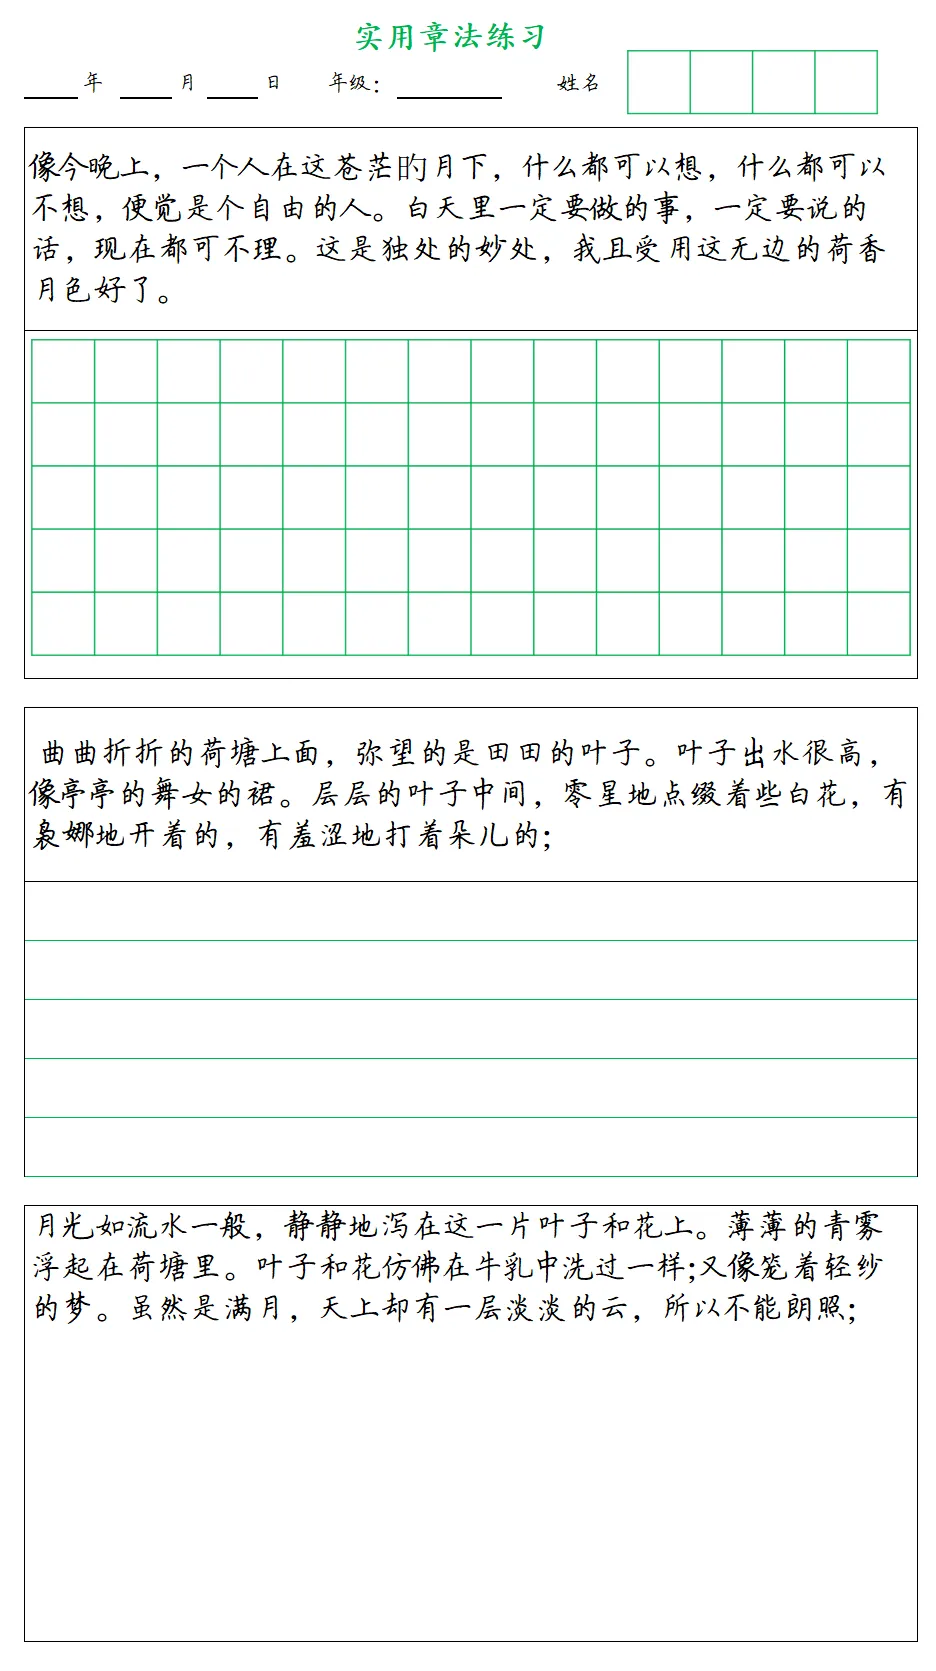 实用章法练习
年 月 日 年级： 姓名
像今晚上，一个人在这苍茫旳月下，什么都可以想，什么都可以
不想，便觉是个自由的人。白天里一定要做的事，一定要说的
话，现在都可不理。这是独处的妙处，我且受用这无边的荷香
月色好了。
曲曲折折的荷塘上面，弥望的是田田的叶子。叶子出水很高，
像亭亭的舞女的裙。层层的叶子中间，零星地点缀着些白花，有
袅娜地开着的，有羞涩地打着朵儿的；
月光如流水一般，静静地泻在这一片叶子和花上。薄薄的青雾
浮起在荷塘里。叶子和花仿佛在牛乳中洗过一样;又像笼着轻纱
的梦。虽然是满月，天上却有一层淡淡的云，所以不能朗照；